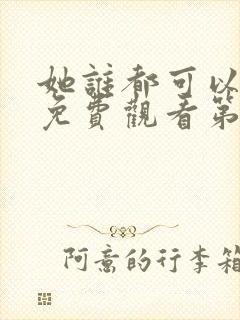 她誰都可以
免費觀看第
阿意的行李箱